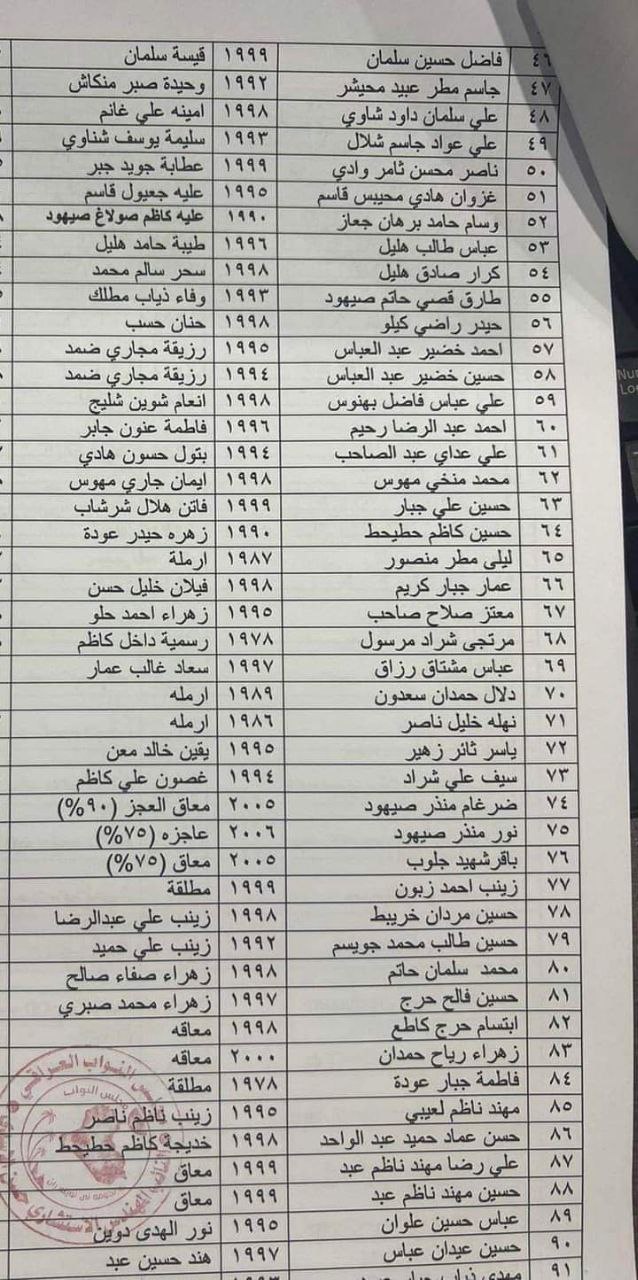 ٤٦ فاضل حسين سلمان ١٩٩٩ قيسة سلمان
٤٧ جاسم مطر عبيد محيشر ١٩٩٢ وحيدة صبر منكاش
٤٨ علي سلمان داود شاوي ١٩٩٨ امينه علي غانم
٤٩ علي عواد جاسم شلال ١٩٩٣ سليمة يوسف شناوي
٥٠ ناصر محسن ثامر وادي ١٩٩٩ عطابة جويد جبر
٥١ غزوان هادي محيبس قاسم ١٩٩٥ عليه جعيول قاسم
٥٢ وسام حامد برهان جعاز ١٩٩٠ عليه كاظم صولاغ صيهود
٥٣ عباس طالب هليل ١٩٩٦ طيبة حامد هليل
٥٤ كرار صادق هليل ١٩٩٨ سحر سالم محمد
٥٥ طارق قصي حاتم صيهود ١٩٩٣ وفاء ذياب مطلك
٥٦ حيدر راضي كيلو ١٩٩٨ حنان حسب
٥٧ احمد خضير عبد العباس ١٩٩٥ رزيقة مجاري ضمد
٥٨ حسين خضير عبد العباس ١٩٩٤ رزيقة مجاري ضمد
٥٩ علي عباس فاضل بهنوس ١٩٩٨ انعام شوين شليج
٦٠ احمد عبد الرضا رحيم ١٩٩٦ فاطمة عنون جابر
٦١ علي عداي عبد الصاحب ١٩٩٤ بتول حسون هادي
٦٢ محمد منخي مهوس ١٩٩٨ ايمان جاري مهوس
٦٣ حسين علي جبار ١٩٩٩ فاتن هلال شرشاب
٦٤ حسين كاظم حطيحط ١٩٩٠ زهره حيدر عودة
٦٥ ليلى مطر منصور ١٩٨٧ ارملة
٦٦ عمار جبار كريم ١٩٩٨ فيلان خليل حسن
٦٧ معتز صلاح صاحب ١٩٩٥ زهراء احمد حلو
٦٨ مرتجى شراد مرسول ١٩٧٨ رسمية داخل كاظم
٦٩ عباس مشتاق رزاق ١٩٩٧ سعاد غالب عمار
٧٠ دلال حمدان سعدون ١٩٨٩ ارمله
٧١ نهله خليل ناصر ١٩٨٦ ارمله
٧٢ ياسر ثائر زهير ١٩٩٥ يقين خالد معن
٧٣ سيف علي شراد ١٩٩٤ غصون علي كاظم
٧٤ ضرغام منذر صيهود ٢٠٠٥ معاق العجز (٩٠%)
٧٥ نور منذر صيهود ٢٠٠٦ عاجزه (٧٥%)
٧٦ باقرشهيد جلوب ٢٠٠٥ معاق (٧٥%)
٧٧ زينب احمد زبون ١٩٩٩ مطلقة
٧٨ حسين مردان خريبط ١٩٩٨ زينب علي عبدالرضا
٧٩ حسين طالب محمد جويسم ١٩٩٢ زينب علي حميد
٨٠ محمد سلمان حاتم ١٩٩٨ زهراء صفاء صالح
٨١ حسين فالح حرج ١٩٩٧ زهراء محمد صبري
٨٢ ابتسام حرج كاطع ١٩٩٨ معاقه
٨٣ زهراء رياح حمدان ٢٠٠٠ معاقه
٨٤ فاطمة جبار عودة ١٩٧٨ مطلقة
٨٥ مهند ناظم لعيبي ١٩٩٥ زينب ناظم ناصر
٨٦ حسن عماد حميد عبد الواحد ١٩٩٨ خديجة كاظم حطيحط
٨٧ علي رضا مهند ناظم عبد ١٩٩٩ معاق
٨٨ حسين مهند ناظم عبد ١٩٩٩ معاق
٨٩ عباس حسين علوان ١٩٩٥ نور الهدى دوين
٩٠ حسين عيدان عباس ١٩٩٧ هند حسين عبد
٩١ مهدي ذياب
مجلس النواب العراقي